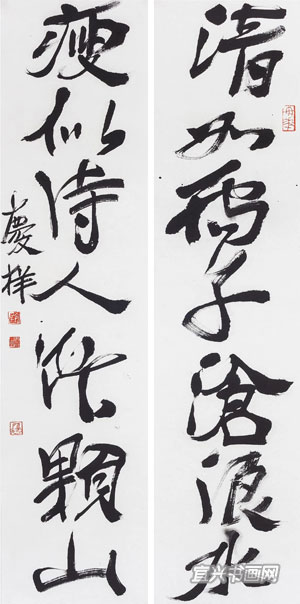 清如孺子滄浪水
瘦似詩人飯顆山
慶祥
宜兴书画网